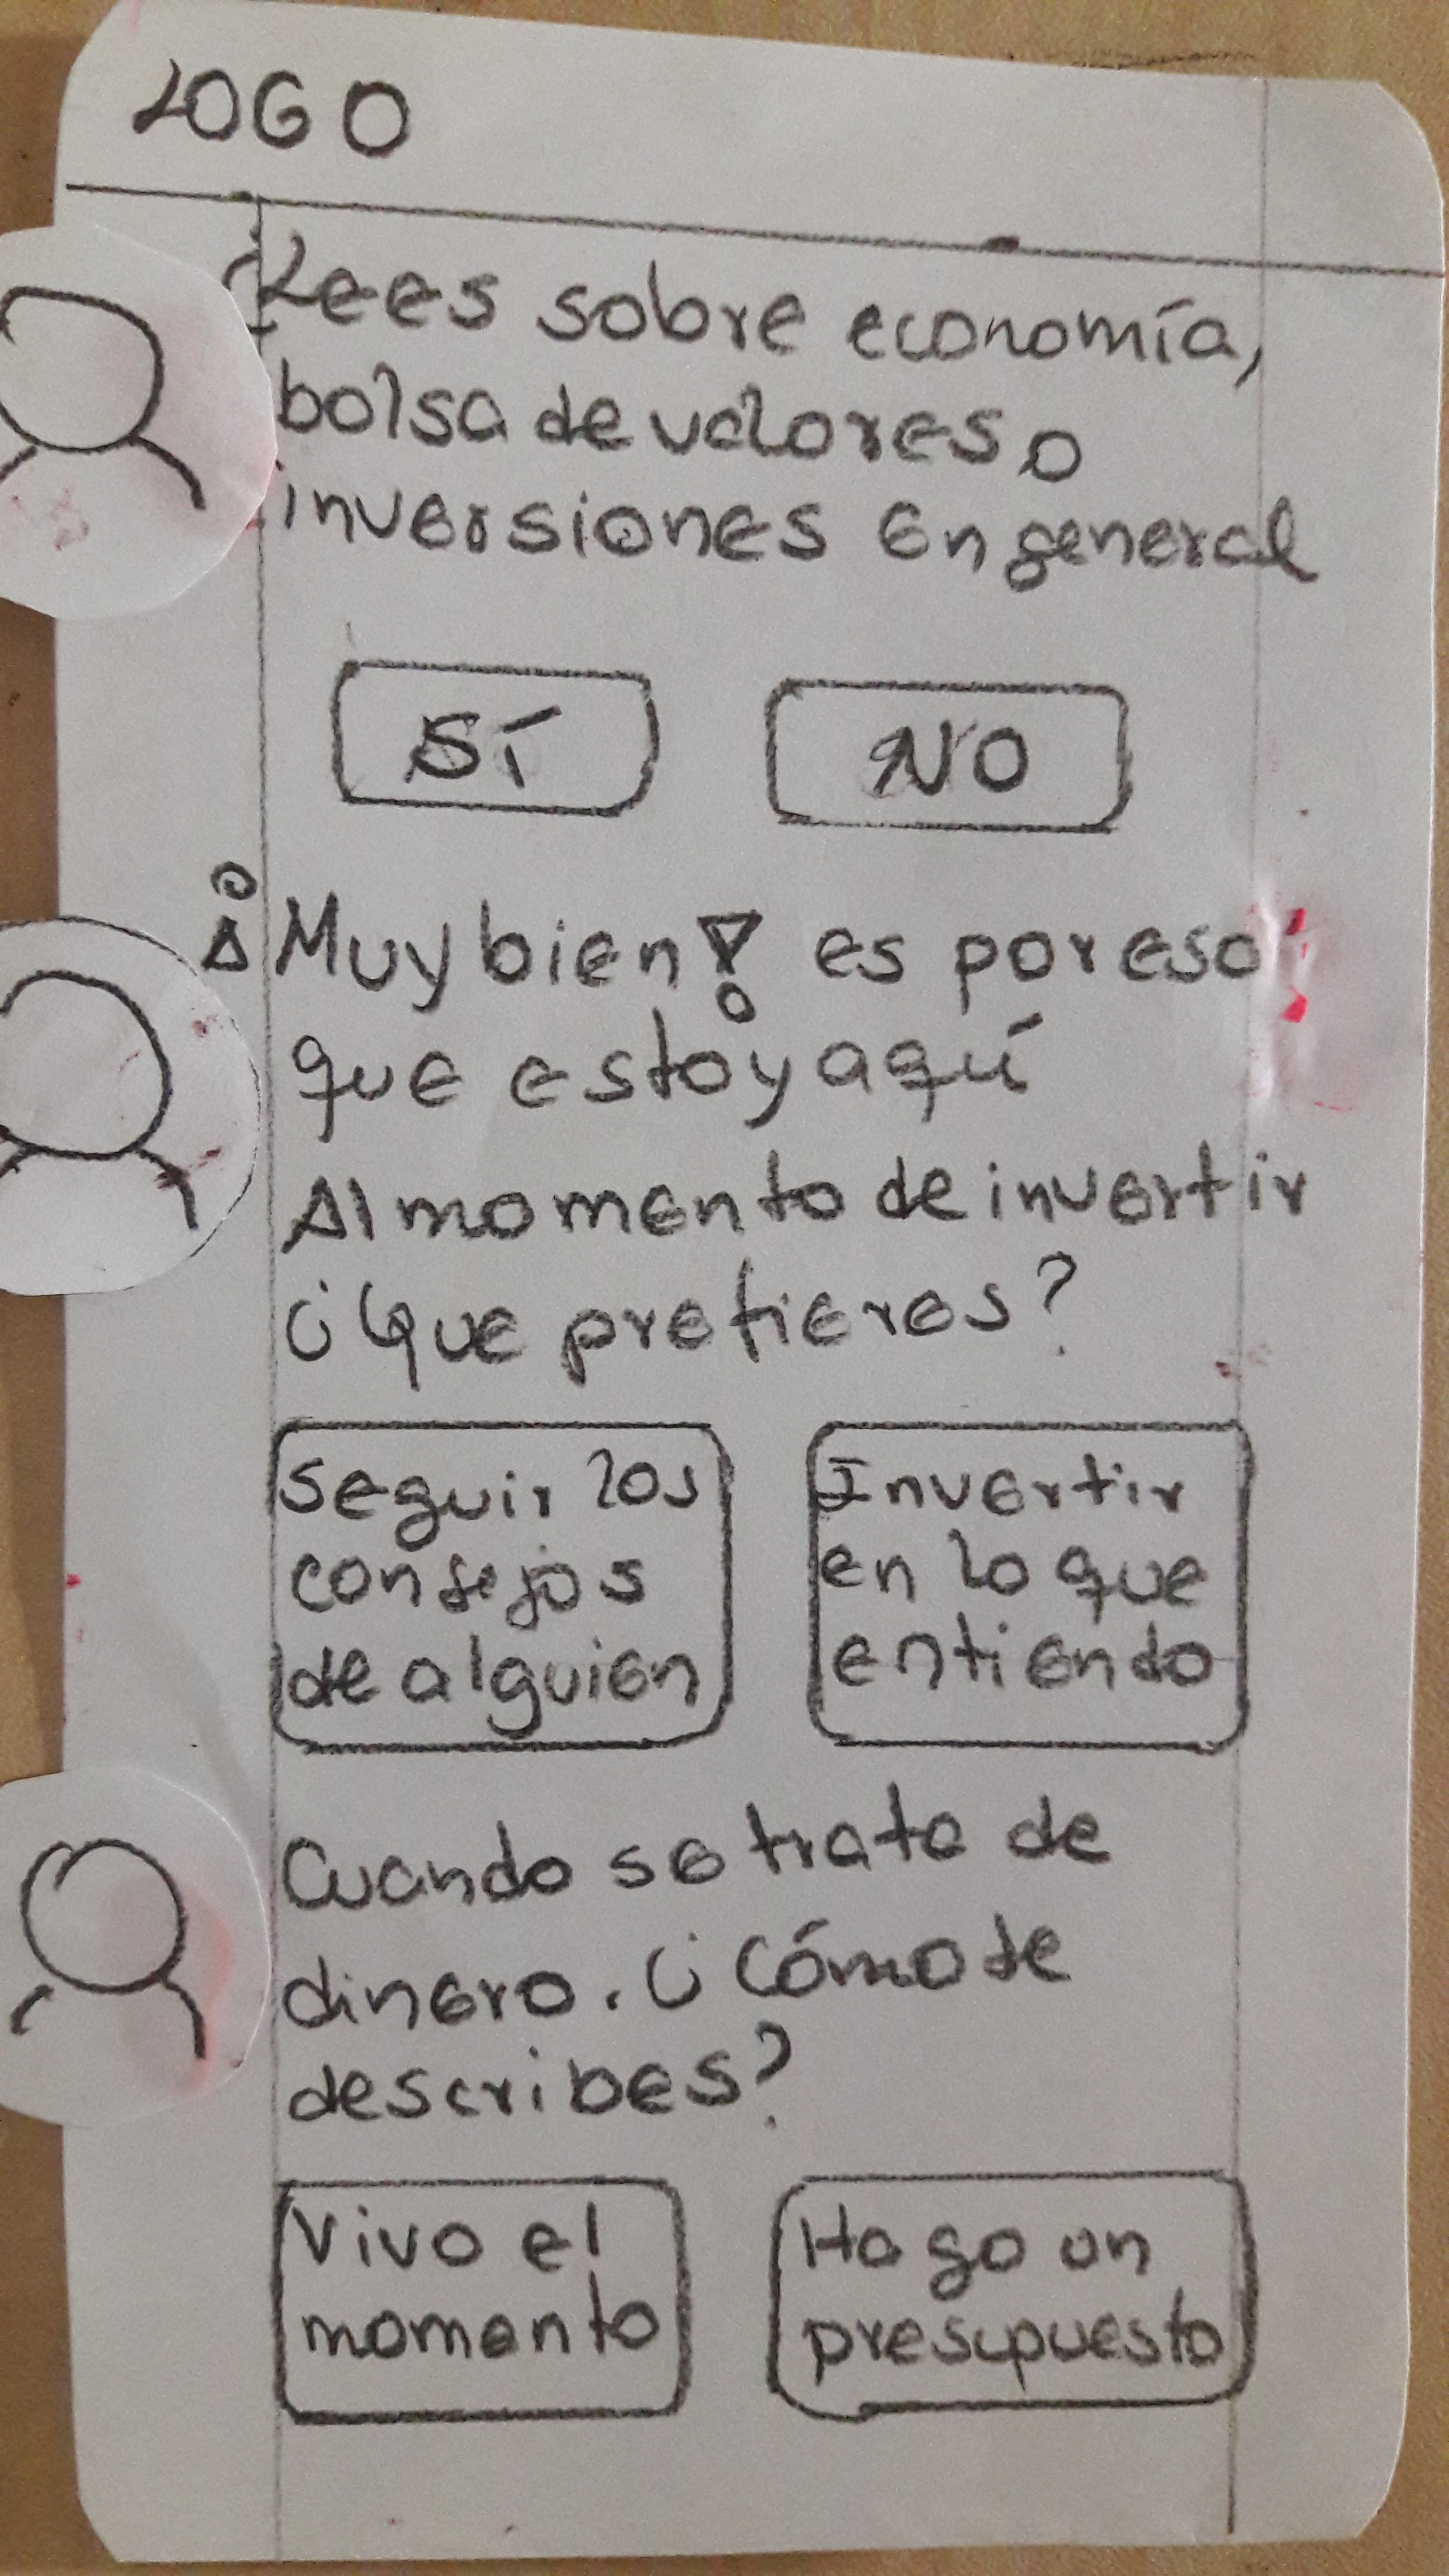 LOGO
¿Lees sobre economía,
bolsa de valores o
inversiones en general
SÍ
NO
¡Muy bien! es por eso
que estoy aquí
Al momento de invertir
¿Que prefieres?
Seguir los
consejos
de alguien
Invertir
en lo que
entiendo
Cuando se trata de
dinero. ¿Cómo te
describes?
Vivo el
momento
Hago un
presupuesto